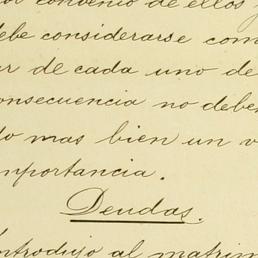 por convenio de ellos
debe considerarse com
ar de cada uno de
onsecuencia no deben
do mas bien un v
mportancia.
Deudas.
Introdujo al matrim